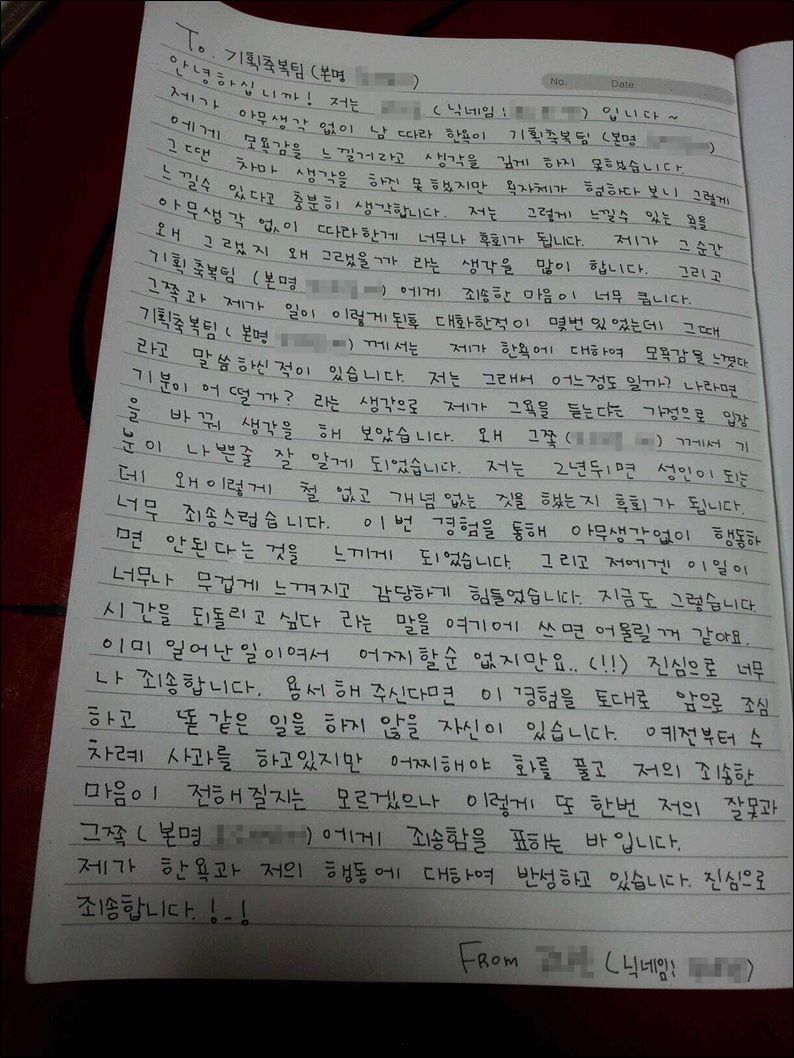 To. 기획축복팀 (본명 )
No. Date
안녕하십니까! 저는 (닉네임: ) 입니다~
제가 아무생각 없이 남 따라 한욕이 기획축복팀 (본명 )
에게 모욕감을 느낄거라고 생각을 깊게 하지 못했습니다.
그땐 차마 생각을 하진 못했지만 욕자체가 험하다 보니 그렇게
느낄수 있다고 충분히 생각합니다. 저는 그렇게 느낄수 있는 욕을
아무생각 없이 따라한게 너무나 후회가 됩니다. 제가 그순간
왜 그랬지 왜 그랬을까 라는 생각을 많이 합니다. 그리고
기획축복팀 (본명 ) 에게 죄송한 마음이 너무 큽니다.
그쪽과 제가 일이 이렇게된후 대화한적이 몇번있었는데 그때
기획축복팀 (본명 ) 께서는 제가 한욕에 대하여 모욕감을 느꼈다.
라고 말씀하신적이 있습니다. 저는 그래서 어느정도일까? 나라면
기분이 어떨까? 라는 생각으로 제가 그욕을 듣는다는 가정으로 입장
을 바꿔 생각을 해 보았습니다. 왜 그쪽 ( ) 께서 기
분이 나쁜줄 잘 알게 되었습니다. 저는 2년뒤면 성인이 되는
데 왜이렇게 철 없고 개념없는 짓을 했는지 후회가 됩니다.
너무 죄송스럽습니다. 이번 경험을 통해 아무생각없이 행동하
면 안된다는것을 느끼게 되었습니다. 그리고 저에겐 이일이
너무나 무겁게 느껴지고 감당하기 힘들었습니다. 지금도 그렇습니다.
시간을 되돌리고싶다 라는 말을 여기에 쓰면어울릴꺼 같아요.
이미 일어난일이여서 어찌할순 없지만요..(!!) 진심으로 너무
나 죄송합니다. 용서해주신다면 이경험을 토대로 앞으로 조심
하고 똑 같은 일을 하지 않을 자신이 있습니다. 예전부터 수
차례 사과를 하고있지만 어찌해야 화를 풀고 저의 죄송한
마음이 전해질지는 모르겠으나 이렇게 또한번 저의 잘못과
그쪽 ( 본명 ) 에게 죄송함을 표하는 바입니다.
제가 한욕과 저의 행동에 대하여 반성하고 있습니다. 진심으로
죄송합니다. !_!
FROM (닉네임: )